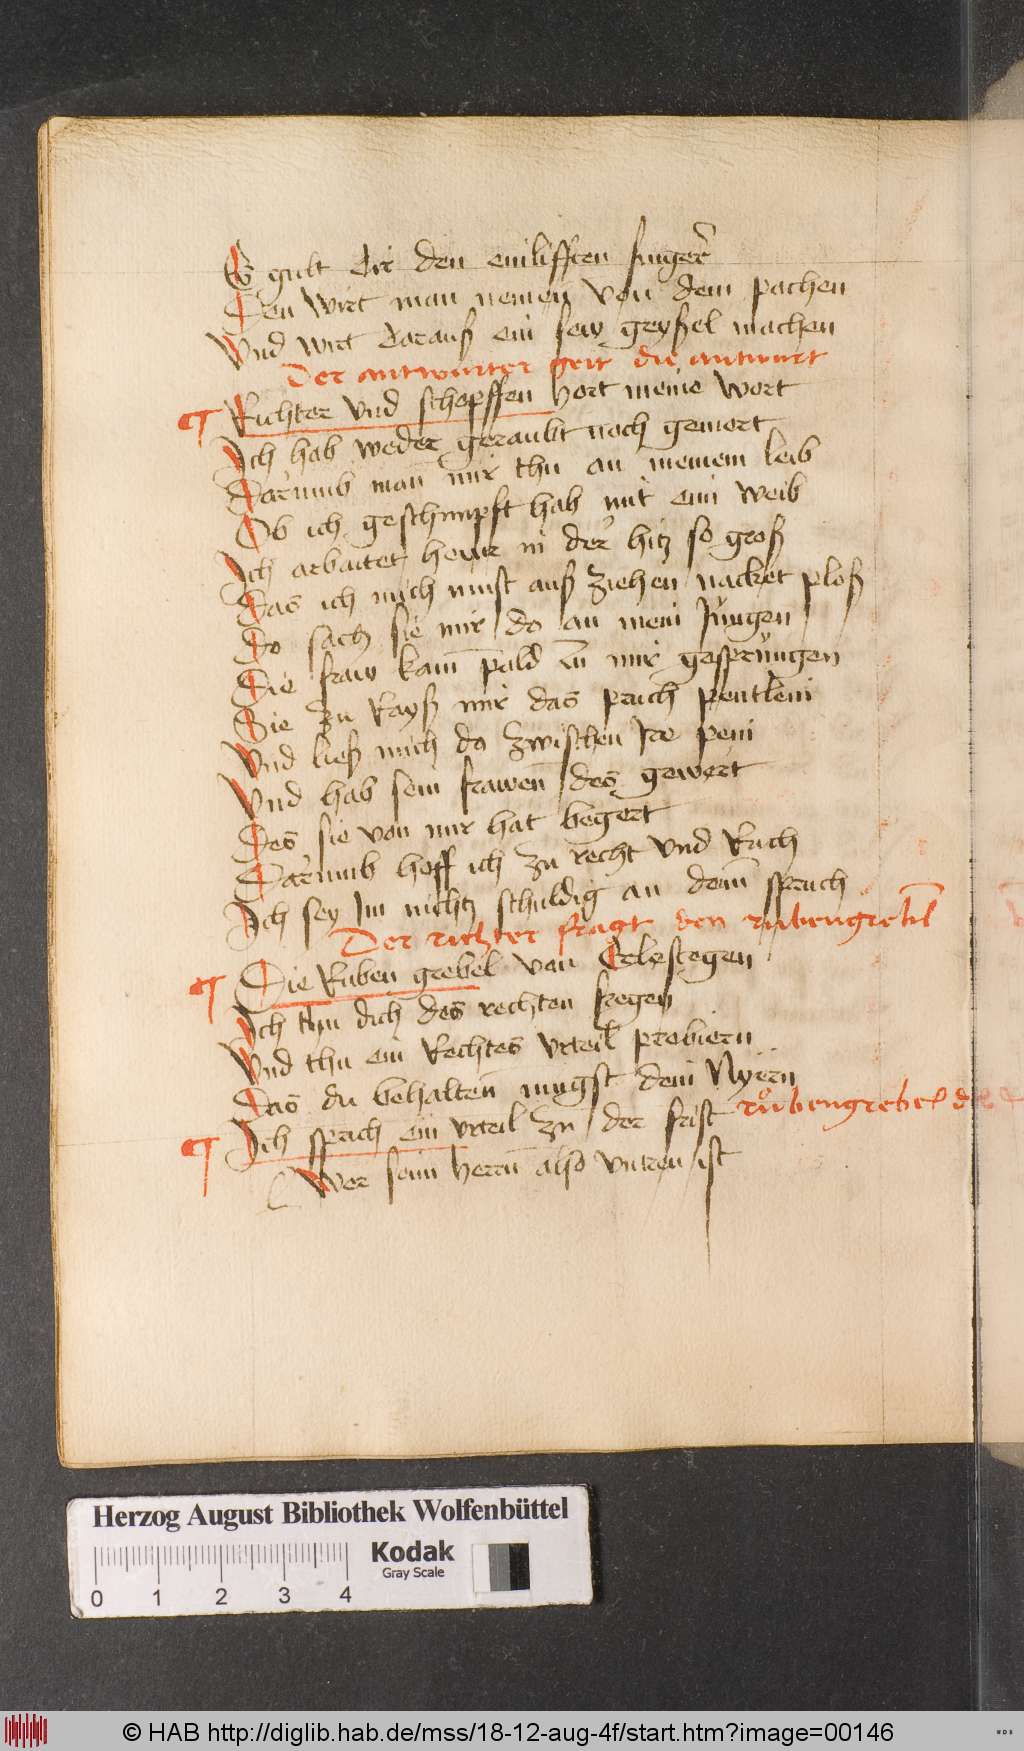 Es gult dir den einlifften finger
Den wirt man nemen von dem pachen
Vnd wirt darauß ein sew greyßel machen
Der antwurter geit die antwurt
¶ Richter vnd schopffen hort meine wort
Ich hab weder geraubt noch gemort
Darumb man mir thu an meinem leib
Ob ich geschimpft hab mit eim weib
Ich arbaitet hewr in der hitz so groß
Das ich mich must auß ziehen nacket ploß
Do sach sie mir do an mein Jungen
Die fraw kam pald zu mir gesprungen
Sie zu Rayß mir das pruch pentlein
Vnd ließ mich do zwischen Ire pein
Vnd hab sein frawen des gewert
Des sie von mir hat begert
Darumb hoff ich zu recht vnd Rach
Ich sey Im nichtz schuldig an dem spruch
Der richter fragt den rubengrebel
¶ Die Ruben grebel von Erlestegen
Ich thu dich des rechten fregen
Vnd thu ein Rechtes vrteil probiern
Das du behalten mugst dein Nyern
rubengrebel d
¶ Ich sprich ein vrteil zu der frist
Wer seim herrn also vntreu ist
Herzog August Bibliothek Wolfenbüttel
Kodak
Gray Scale
0 1 2 3 4
© HAB http://diglib.hab.de/mss/18-12-aug-4f/start.htm?image=00146